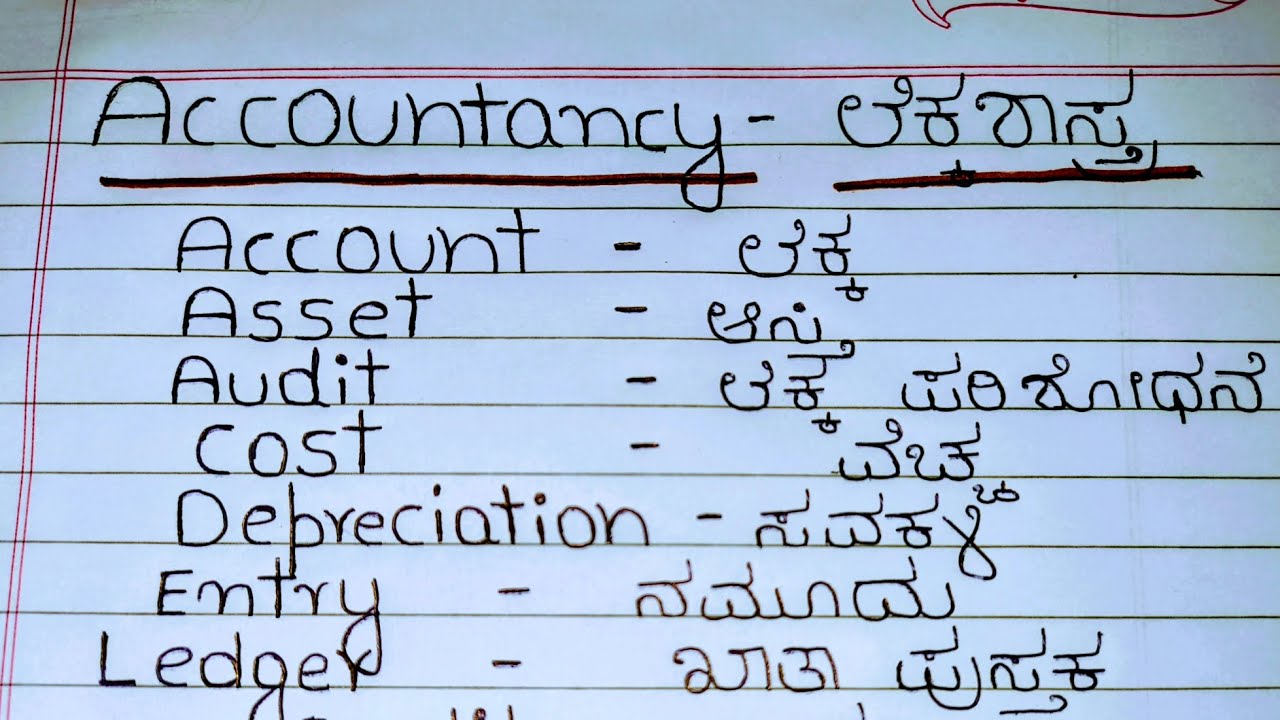 Accountancy - ಲೆಕ್ಕಶಾಸ್ತ್ರ
Account - ಲೆಕ್ಕ
Asset - ಆಸ್ತಿ
Audit - ಲೆಕ್ಕ ಪರಿಶೋಧನೆ
Cost - ವೆಚ್ಚ
Depreciation - ಸವಕಳಿ
Entry - ನಮೂದು
Ledger - ಖಾತಾ ಪುಸ್ತಕ